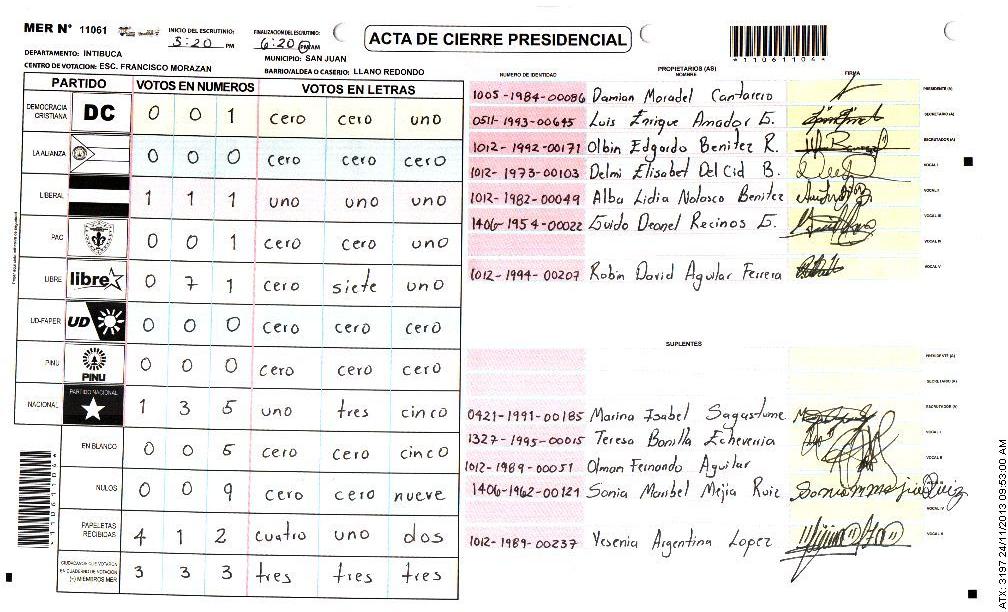 MER N° 11061
INICIO DEL ESCRUTINIO:
5:20 PM
FINALIZACION DEL ESCRUTINIO:
6:20 PM AM
ACTA DE CIERRE PRESIDENCIAL
*11061104*
DEPARTAMENTO: INTIBUCA
MUNICIPIO: SAN JUAN
CENTRO DE VOTACION: ESC. FRANCISCO MORAZAN
BARRIO/ALDEA O CASERIO: LLANO REDONDO
PARTIDO VOTOS EN NUMEROS VOTOS EN LETRAS
DEMOCRACIA CRISTIANA DC 0 0 1 cero cero uno
LA ALIANZA 0 0 0 cero cero cero
LIBERAL 1 1 1 uno uno uno
PAC 0 0 1 cero cero uno
LIBRE libre 0 7 1 cero siete uno
UD-FAPER UD 0 0 0 cero cero cero
PINU PINU 0 0 0 cero cero cero
NACIONAL PARTIDO NACIONAL 1 3 5 uno tres cinco
EN BLANCO 0 0 5 cero cero cinco
NULOS 0 0 9 cero cero nueve
PAPELETAS RECIBIDAS 4 1 2 cuatro uno dos
CIUDADANOS QUE VOTARON EN CUADERNO DE VOTACION (+) MIEMBROS MER 3 3 3 tres tres tres
*11061104*
PROPIETARIOS (AS)
NUMERO DE IDENTIDAD NOMBRE FIRMA
1005-1984-00086 Damian Moradel Cantarero PRESIDENTE (A)
0511-1993-00645 Luis Enrique Amador G. SECRETARIO (A)
1012-1992-00171 Olbin Edgardo Benitez R. ESCRUTADOR (A)
1012-1973-00103 Delmi Elisabet Del Cid B. VOCAL I
1012-1982-00049 Alba Lidia Nolasco Benitez VOCAL II
1406-1954-00022 Guido Deonel Recinos G. VOCAL III
VOCAL IV
1012-1994-00207 Robin David Aguilar Ferrera VOCAL V
SUPLENTES
PRESIDENTE (A)
SECRETARIO (A)
0421-1991-00185 Marina Isabel Sagastume ESCRUTADOR (A)
1327-1995-00015 Teresa Bonilla Echeverria VOCAL I
1012-1989-00051 Olman Fernando Aguilar VOCAL II
1406-1962-00121 Sonia Maribel Mejia Ruiz
VOCAL IV
1012-1989-00237 Yesenia Argentina Lopez VOCAL V
ATX: 3197 24/11/2013 09:53:00 AM